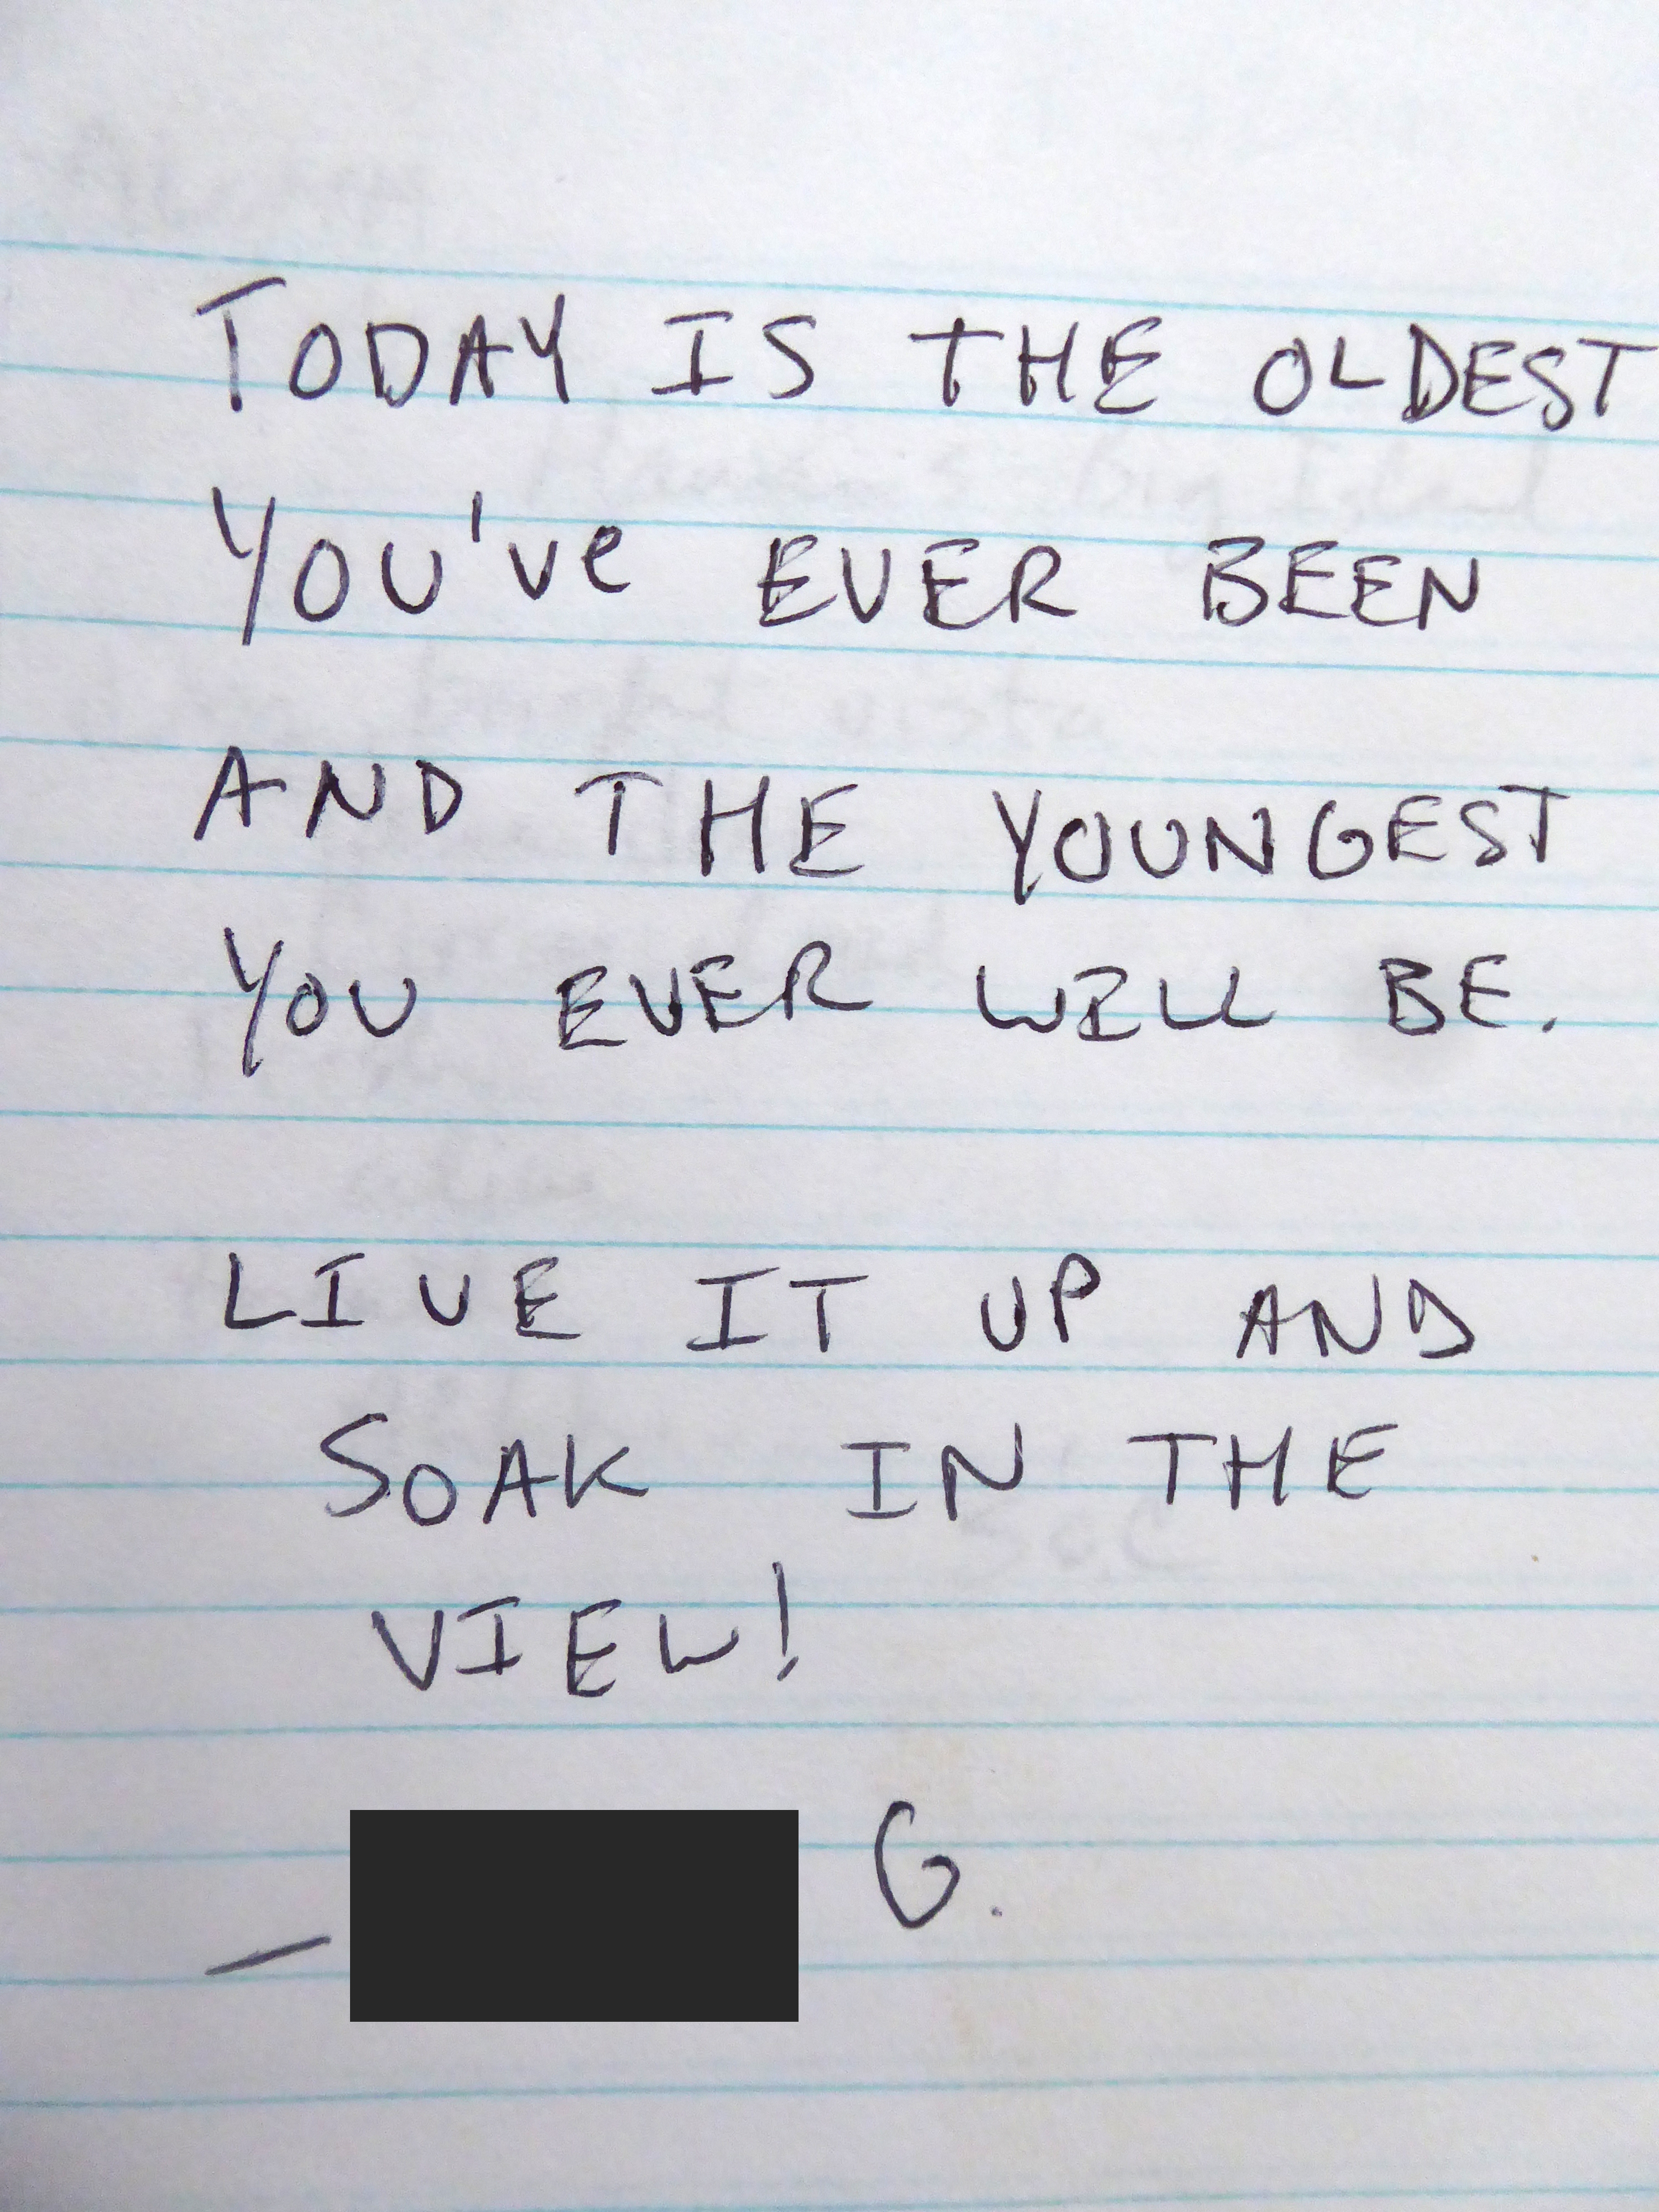 TODAY IS THE OLDEST
YOU'Ve EVER BEEN
AND THE YOUNGEST
YOU EVER WILL BE.
LIVE IT UP AND
SOAK IN THE
VIEW!
— G.